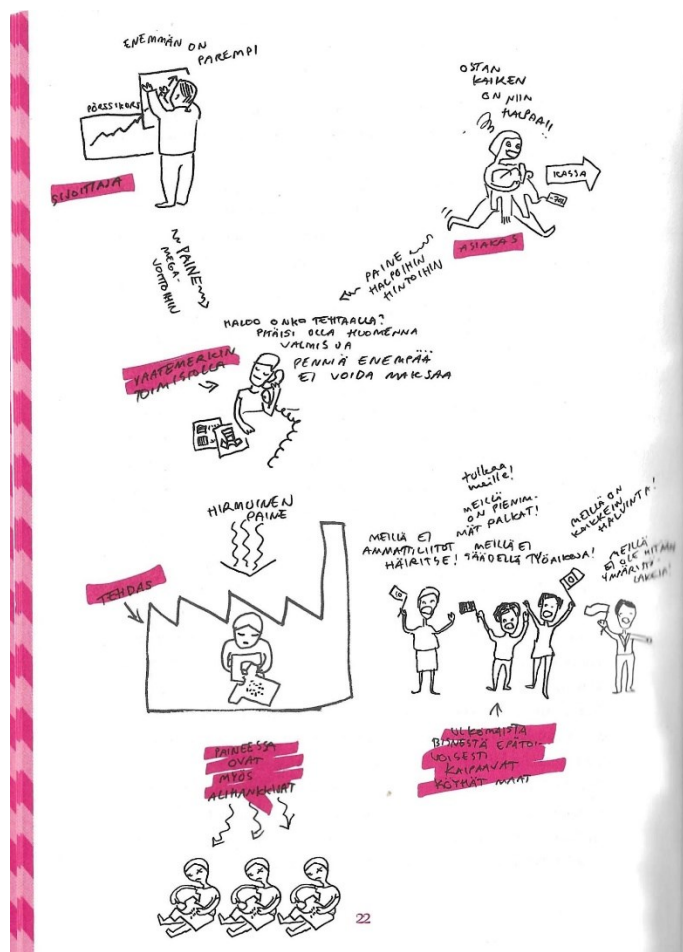 ENEMMÄN ON
PAREMPI
PÖRSSIKURS
SIJOITTAJA
OSTAN
KAIKEN
ON NIIN
HALPAA!!
KASSA
ASIAKAS
PAINE
MEGA-
VOITTOIHIN
PAINE
HALPOIHIN
HINTOIHIN
HALOO ONKO TEHTAALLA?
PITÄISI OLLA HUOMENNA
VALMIS JA
PENNIÄ ENEMPÄÄ
EI VOIDA MAKSAA
VAATEMERKIN
TOIMISTOLLA
HIRMUINEN
PAINE
TEHDAS
MEILLÄ EI
AMMATTILIITOT
HÄIRITSE!
tulkaa
meille!
MEILLÄ
ON PIENIM-
MÄT PALKAT!
MEILLÄ EI
SÄÄDELLÄ TYÖAIKOJA!
MEILLÄ ON
KAIKKEIN
HALVINTA!
MEILLÄ
EI OLE MITÄÄN
YMPÄRISTÖ-
LAKEJA!
PAINEESSA
OVAT
MYÖS
ALIHANKKIJAT
ULKOMAISTA
BISNESTÄ EPÄTOI-
VOISESTI
KAIPAAVAT
KÖYHÄT MAAT
22